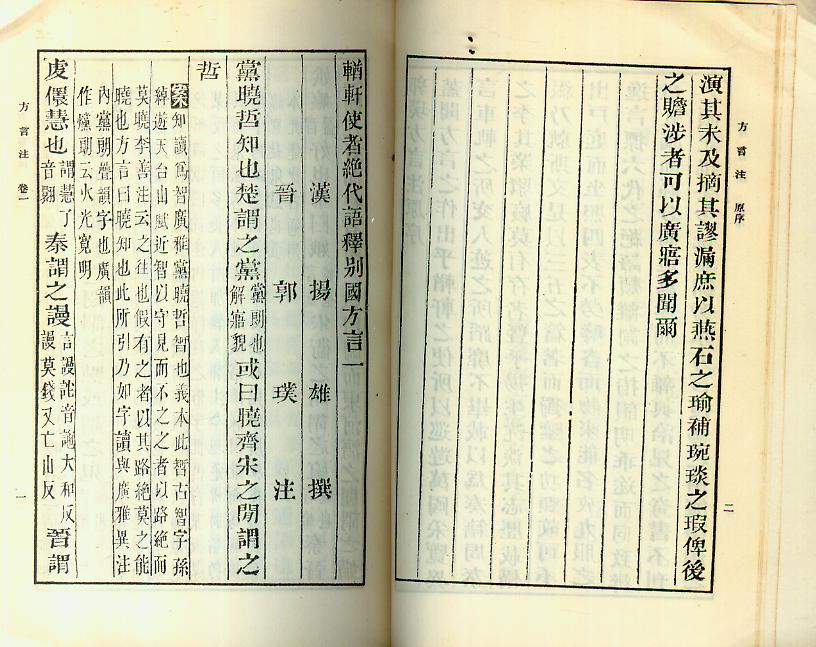 方言注 原序
演其未及摘其謬漏庶以燕石之瑜補琬琰之瑕俾後
之贍涉者可以廣寤多聞爾
二
輶軒使者絕代語釋別國方言一
漢 揚雄 撰
晉 郭璞 注
黨曉哲知也楚謂之黨黨朗也解寤貌或曰曉齊宋之閒謂之
哲
案知讀爲智廣雅黨曉哲智也義本此智古智字孫
綽遊天台山賦近智以守見而不之之者以路絕而
莫曉李善注云之往也假有之者以其路絕莫之能
曉也方言曰曉知也此所引乃如字讀與廣雅異注
內黨朗疊韻字也廣韻
作爣朗云火光寬明
虔儇慧也謂慧了音翾秦謂之謾言謾詑音訑大和反謾莫錢又亡山反晉謂
方言注 卷一
一